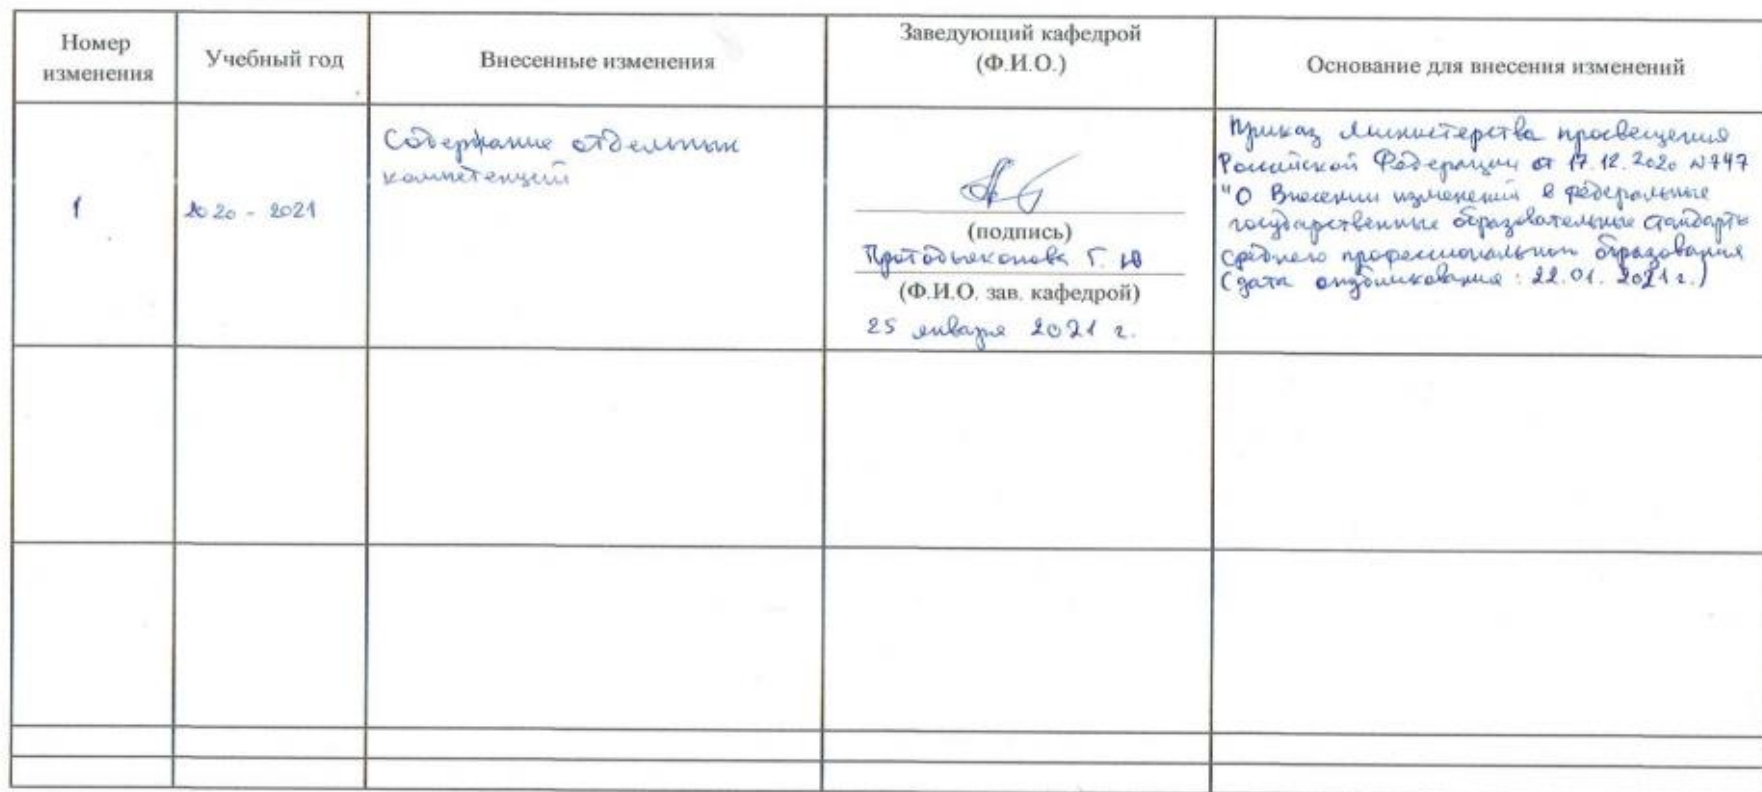 Номер
изменения
Учебный год
Внесенные изменения
Заведующий кафедрой
(Ф.И.О.)
Основание для внесения изменений
1
2020 - 2021
Содержание отдельных
компетенций
(подпись)
Протодьяконова Г. Ю
(Ф.И.О. зав. кафедрой)
25 января 2021 г.
Приказ Министерства просвещения
Российской Федерации от 17.12.2020 N747
"О Внесении изменений в федеральные
государственные образовательные стандарты
среднего профессионального образования
(дата опубликования: 22.01.2021 г.)